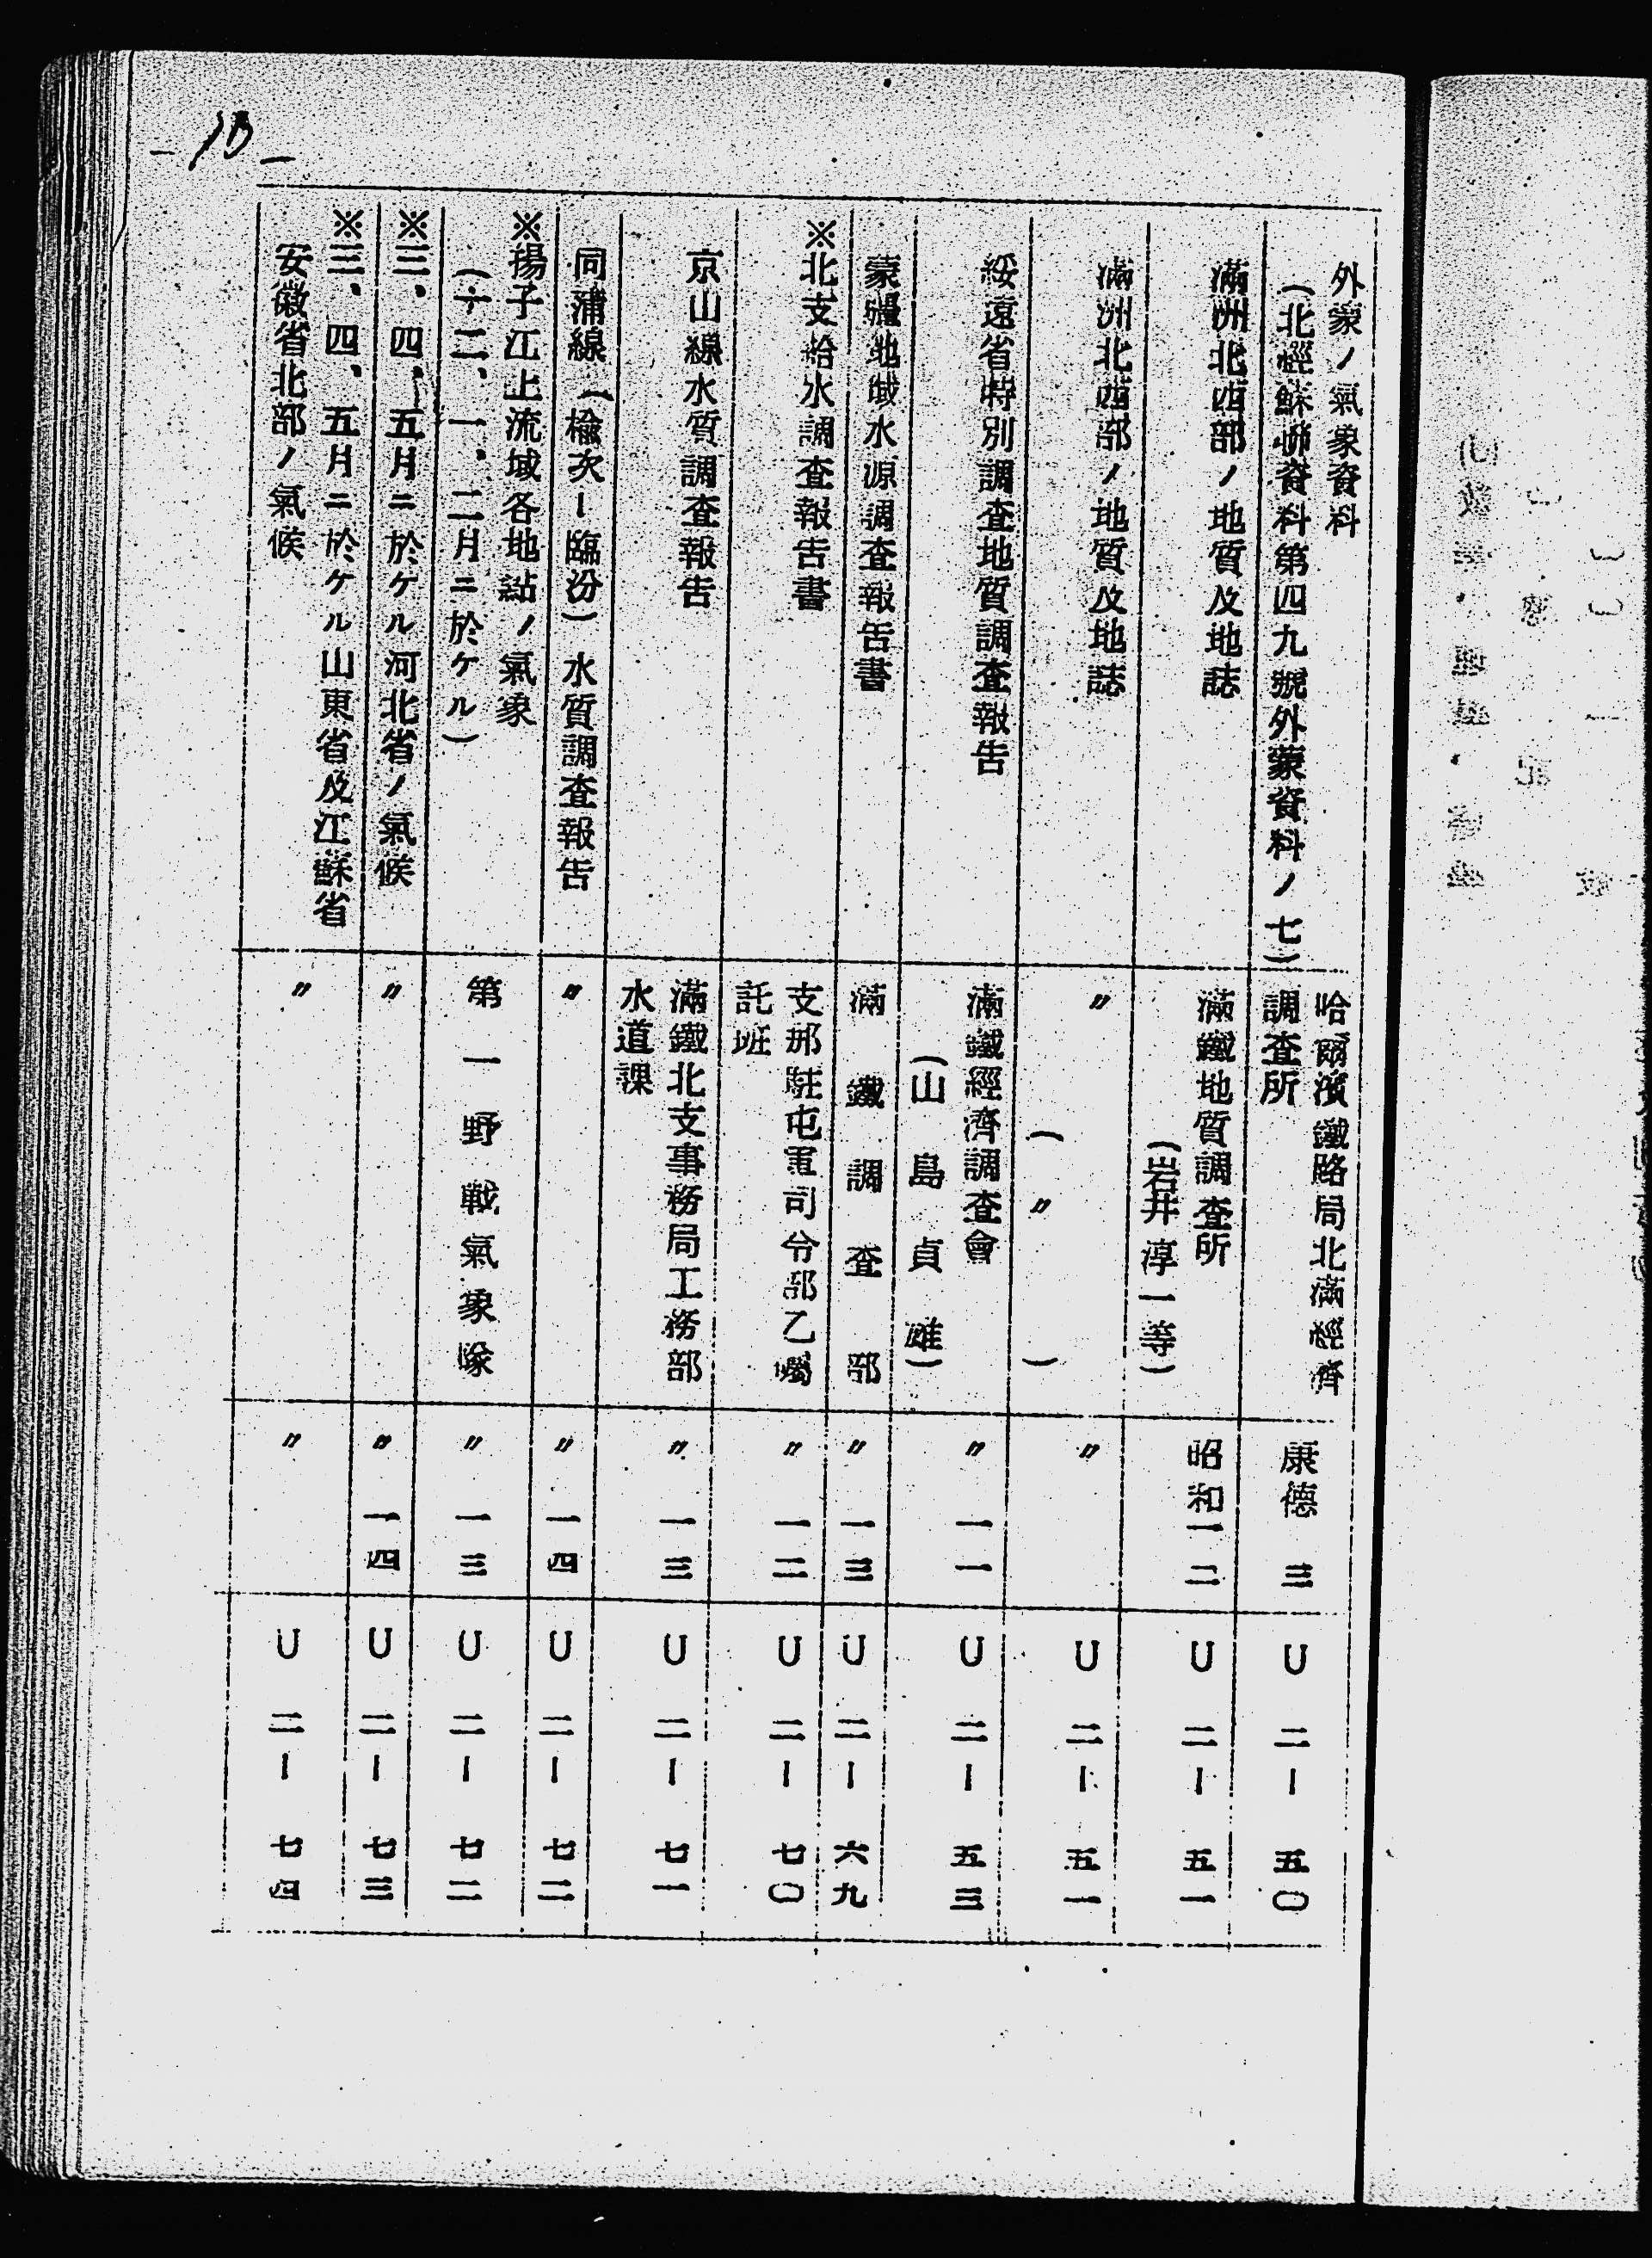 外蒙ノ氣象資料
(北經蘇聯資料第四九號外蒙資料ノ七)
哈爾濱鐵路局北滿經濟
調査所
康德 三
U 二ー 五〇
滿洲北西部ノ地質及地誌
滿鐵地質調査所
(岩井淳一等)
昭和一二
U 二ー 五一
滿洲北西部ノ地質及地誌
〃
( 〃 )
〃
U 二ー 五一
綏遠省特別調査地質調査報告
滿鐵經濟調査會
(山島貞雄)
〃 一一
U 二ー 五三
蒙疆地域水源調査報告書
滿鐵調査部
〃 一三
U 二ー 六九
※北支給水調査報告書
支那駐屯軍司令部乙囑
託班
〃 一二
U 二ー 七〇
京山線水質調査報告
滿鐵北支事務局工務部
水道課
〃 一三
U 二ー 七一
同蒲線(楡次ー臨汾)水質調査報告
〃
〃 一四
U 二ー 七二
※揚子江上流域各地點ノ氣象
(十二、一、二月ニ於ケル)
第一野戰氣象隊
〃 一三
U 二ー 七二
※三、四、五月ニ於ケル河北省ノ氣候
〃
〃 一四
U 二ー 七三
※三、四、五月ニ於ケル山東省及江蘇省
安徽省北部ノ氣候
〃
〃
U 二ー 七四